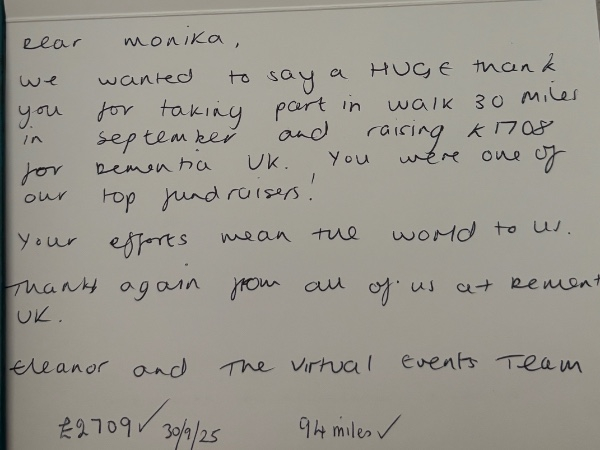 Dear Monika,
We wanted to say a HUGE thank
you for taking part in walk 30 Miles
in september and raising £1708
for Dementia UK. You were one of
our top fundraisers!
Your efforts mean the world to us.
Thanks again from all of us at Dement
UK.
Eleanor and The Virtual Events Team
£2709✓ 30/9/25 94 miles✓